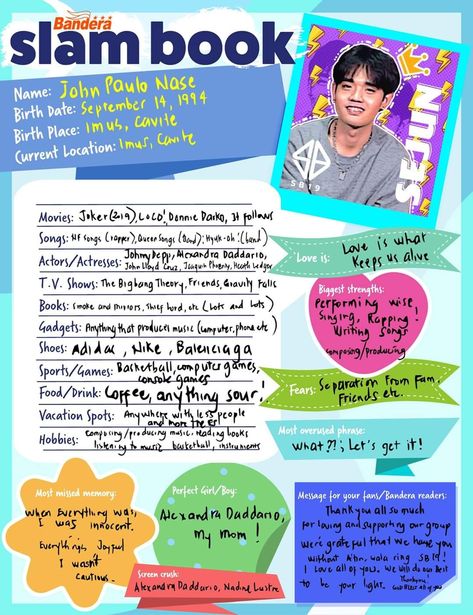 Bandera
slam book
Name: John Paulo Nase
Birth Date: September 14, 1994
Birth Place: Imus, Cavite
Current Location: Imus, Cavite
SEJUN
SB19
Movies: Joker (2019), COCO!, Donnie Darko, It follows
Songs: NF songs (rapper), Queen Songs (Band), Hyukoh! (band)
Actors/Actresses: Johnny Depp, Alexandra Daddario,
John Lloyd Cruz, Joaquin Phoenix, Heath Ledger
T.V. Shows: The Big bang Theory, Friends, Gravity Falls
Books: Smoke and mirrors, Thief Lord, etc (lots and lots)
Gadgets: Anything that produces music (computer, phone etc
Shoes: Adidas, Nike, Balenciaga
Sports/Games: Basketball, computer games,
console games
Food/Drink: Coffee, anything sour!
Vacation Spots: Anywhere with less people
and more trees!
Hobbies: composing/producing music, reading books
listening to music basketball, instruments
Love is: Love is what
keeps us alive
Biggest strengths:
Performing wise
Singing, Rapping!
Writing songs
composing/producing
Fears: Separation from Fam,
Friends etc.
Most overused phrase:
What??; Let's get it!
Most missed memory:
When everything was,
I was innocent.
Everything's Joyful
I wasn't
cautious.
Perfect Girl/Boy:
Alexandra Daddario,
My Mom!
Screen crush:
Alexandra Daddario, Nadine Lustre
Message for your fans/Bandera readers:
Thank you all so much
for loving and supporting our group
we're grateful that we have you
without A'tin, wala ring SB19!
I love all of you. We will do our best
to be your light. Thank you!
God Bless all of you